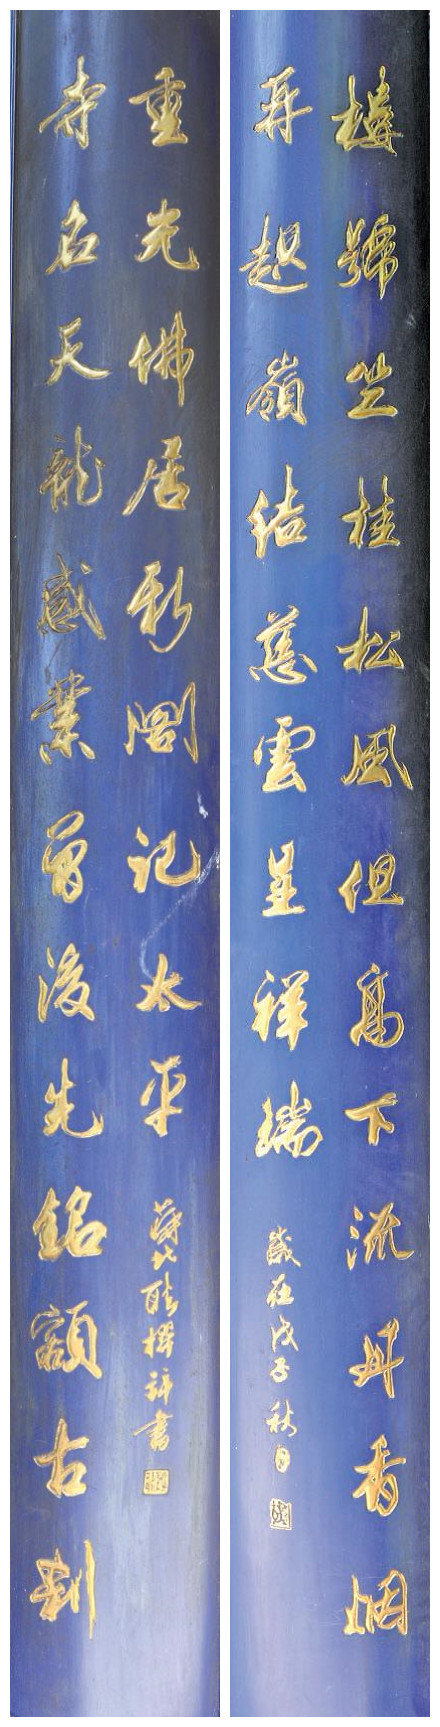 樓號竺桂松風但高下流丹香烟
再起嶺結慈雲呈祥瑞
歲在戊子秋月
寺名天龍感業曾後先銘額古剎
重光佛居新閣記太平
撰并書